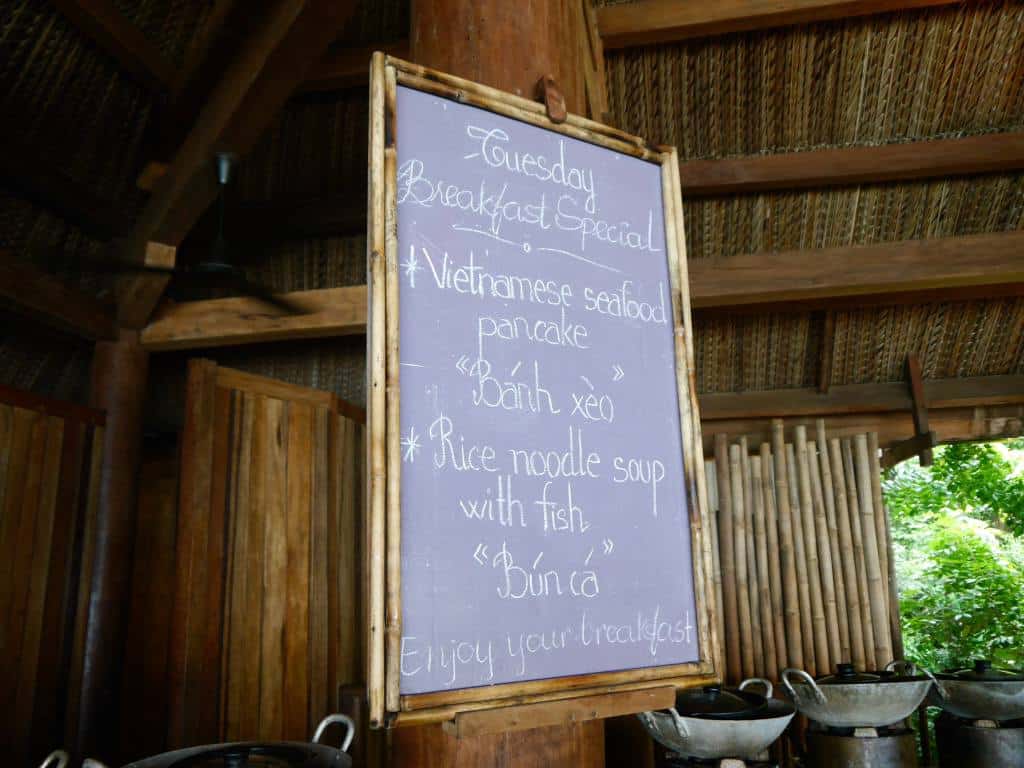 Tuesday
Breakfast Special
* Vietnamese seafood
pancake
"Bánh xèo"
* Rice noodle soup
with fish
"Bún cá"
Enjoy your breakfast